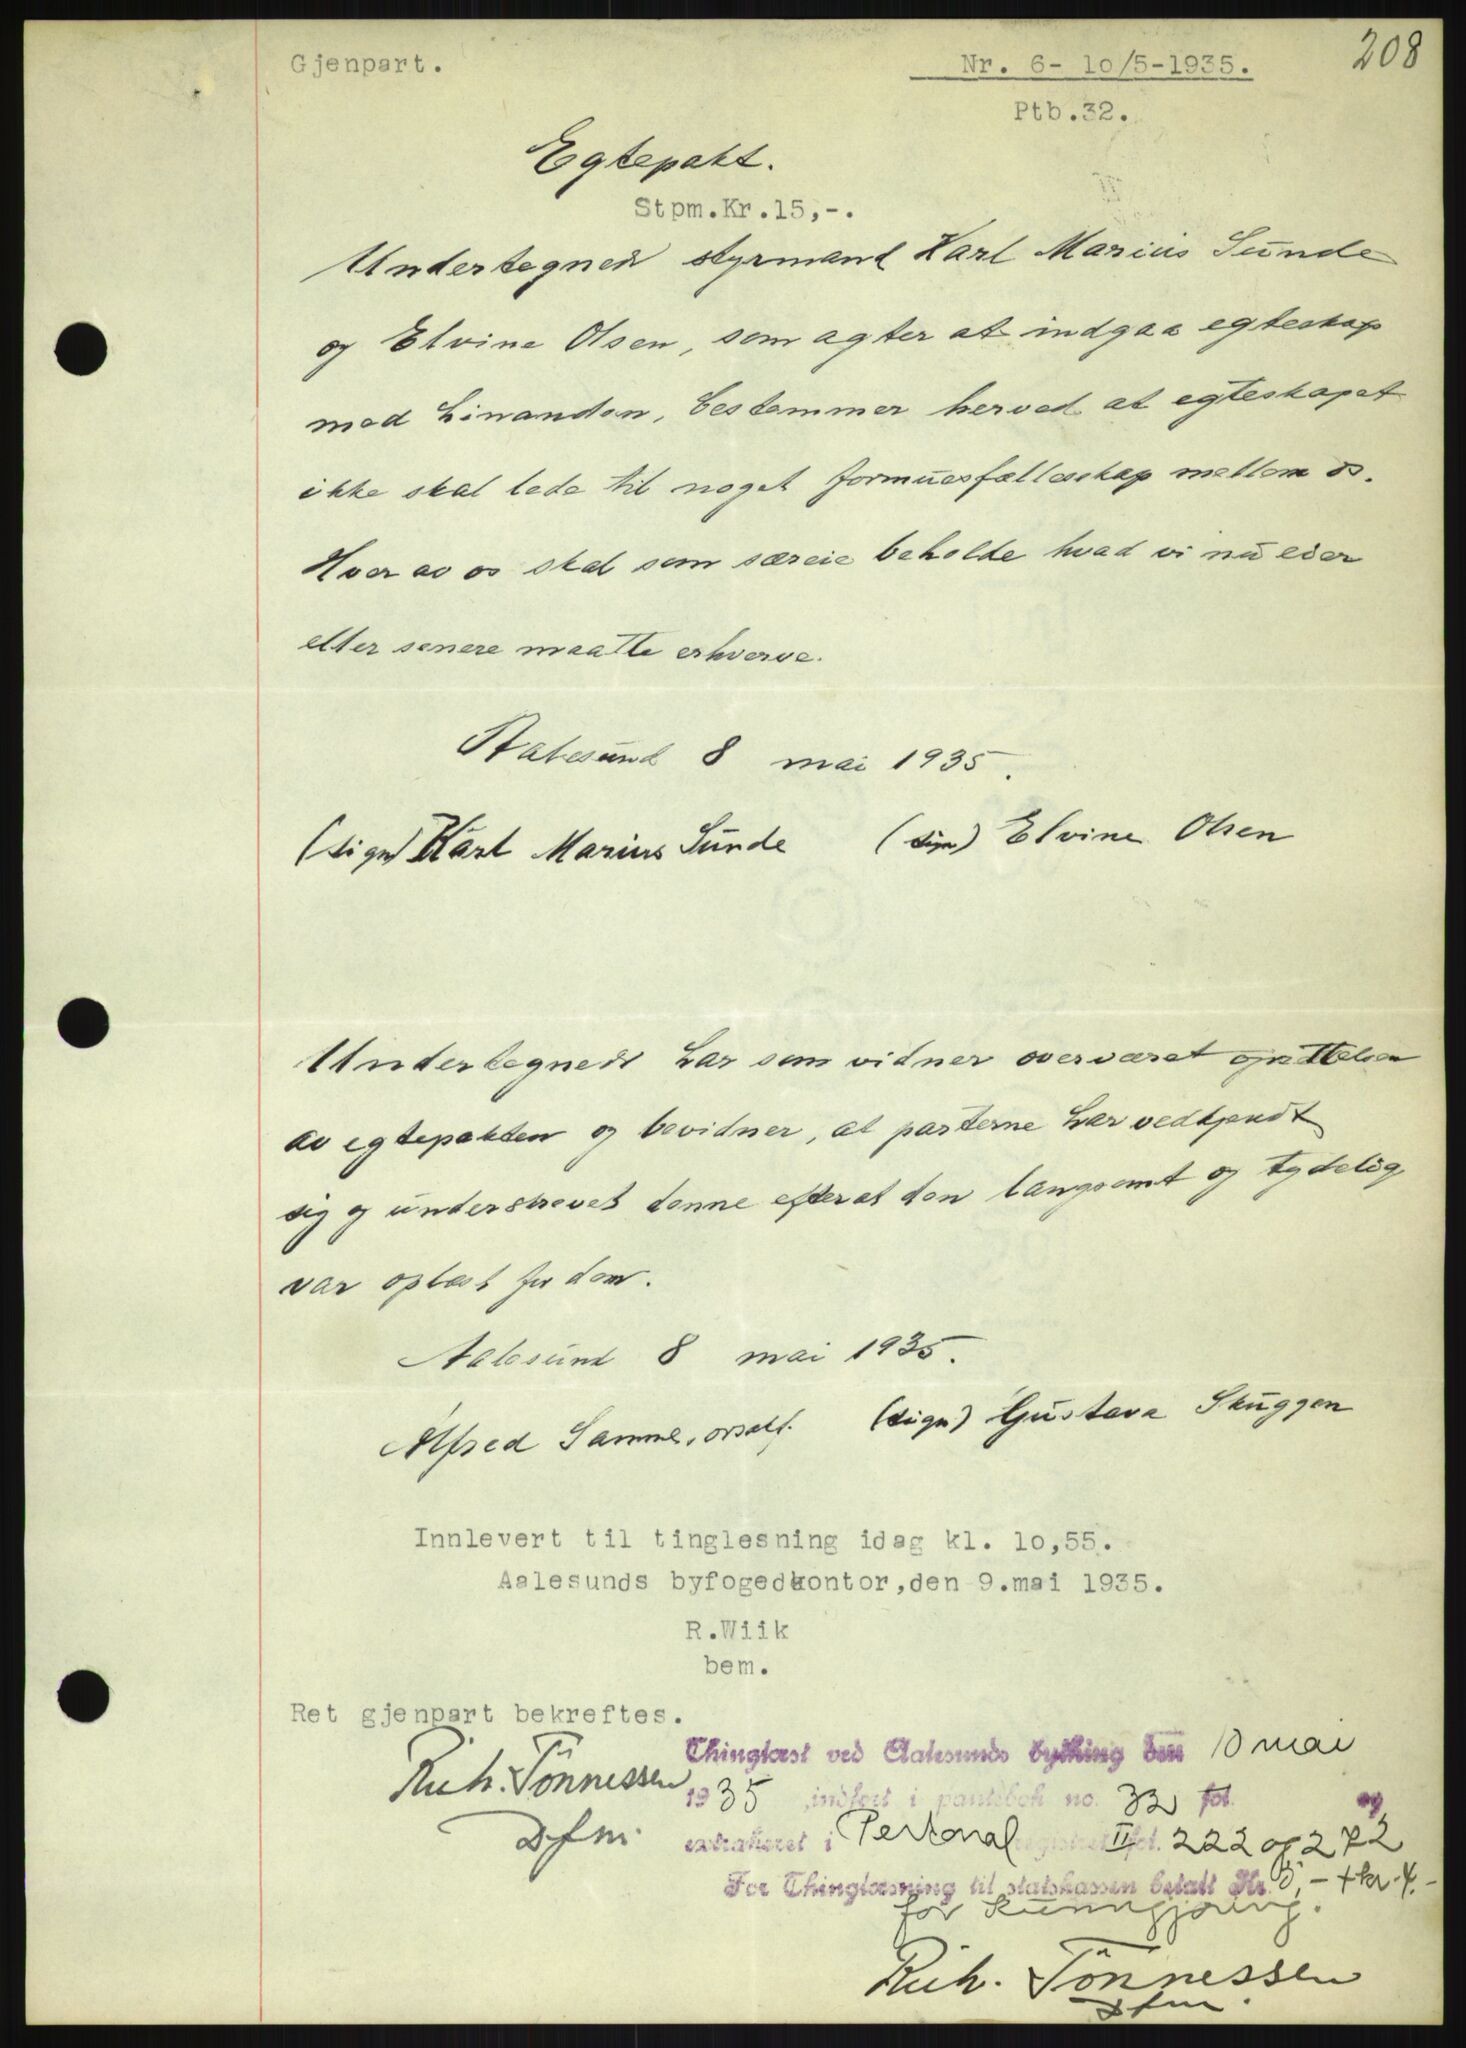 208
Gjenpart.
Nr. 6- 10/5-1935.
Ptb.32.
Egtepakt.
Stpm.Kr.15,-.
Undertegnede styrmand Karl Marius Sunde
og Elvine Olsen, som agter at indgaa egteskap
med hinanden, bestemmer herved at egteskapet
ikke skal lede til noget formuesfællesskap mellem os.
Hver av os skal som særeie beholde hvad vi nu eier
eller senere maatte erhverve.
Aalesund 8 mai 1935.
(sign) Karl Marius Sunde (sign) Elvine Olsen
Undertegnede har som vidner overværet oprettelsen
av egtepakten og bevidner, at parterne har vedkjendt
sig og underskrevet denne efterat den langsomt og tydelig
var oplæst for dem.
Aalesund 8 mai 1935.
Alfred Samme, orsakf. (sign) Gustava Skuggen
Innlevert til tinglesning idag kl. 10,55.
Aalesunds byfogedkontor, den 9.mai 1935.
R.Wiik
bem.
Ret gjenpart bekreftes.
Rich. Tönnessen
Dfm.
Thinglæst ved Aalesunds bything den 10 mai
1935, indført i pantebok no. 32 fol. og
extraheret i Personalregistret II fol. 222 og 272
For Thinglæsning til statskassen betalt Kr. 5,- + kr. 4.-
for kunngjöring.
Rich. Tönnessen
Dfm.